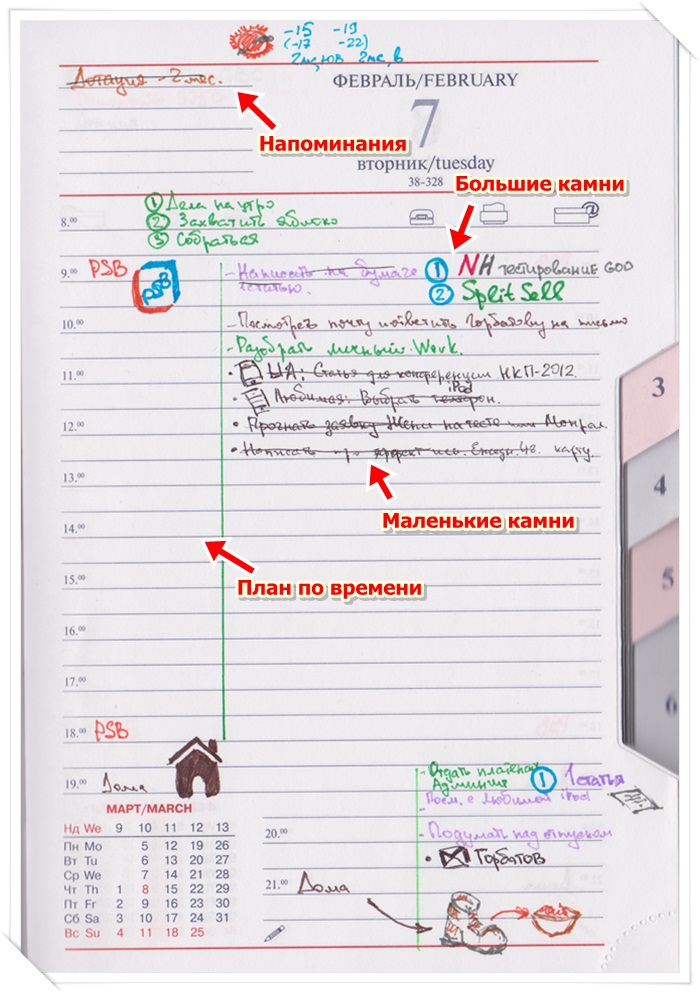 -15 -19
(-17 -22)
Дотация - 2 мес.
ФЕВРАЛЬ/FEBRUARY
Напоминания
7
вторник/tuesday
38-328
Большие камни
① Дела на утро
8.00
② Захватить яблоко
③ Собраться
9.00 PSB
PSB
- Написать на бумаге
статью.
① NH тестирование GOD
② Split Sell
10.00
- Посмотреть почту и ответить Горбатову на письмо
- Разобрать личный Work.
11.00
• ЦА: Статья для конференции НКП-2012.
iPod
• Любимая: Выбрать телефон.
12.00
• Прогнать заявку Жени на тесте или Монрал
• Написать про эффект карту.
13.00
Маленькие камни
14.00
План по времени
15.00
16.00
17.00
18.00 PSB
19.00 Дома
- Отдать
Админия
① 1 статья
- Поем. с Любимой iPod
- Подумать над отпуском
• Горбатов
МАРТ/MARCH
Нд We 9 10 11 12 13
Пн Mo 5 12 19 26
Вт Tu 6 13 20 27
Ср We 7 14 21 28
Чт Th 1 8 15 22 29
Пт Fr 2 9 16 23 30
Сб Sa 3 10 17 24 31
Вс Su 4 11 18 25
20.00
21.00 Дома
3
4
5
6